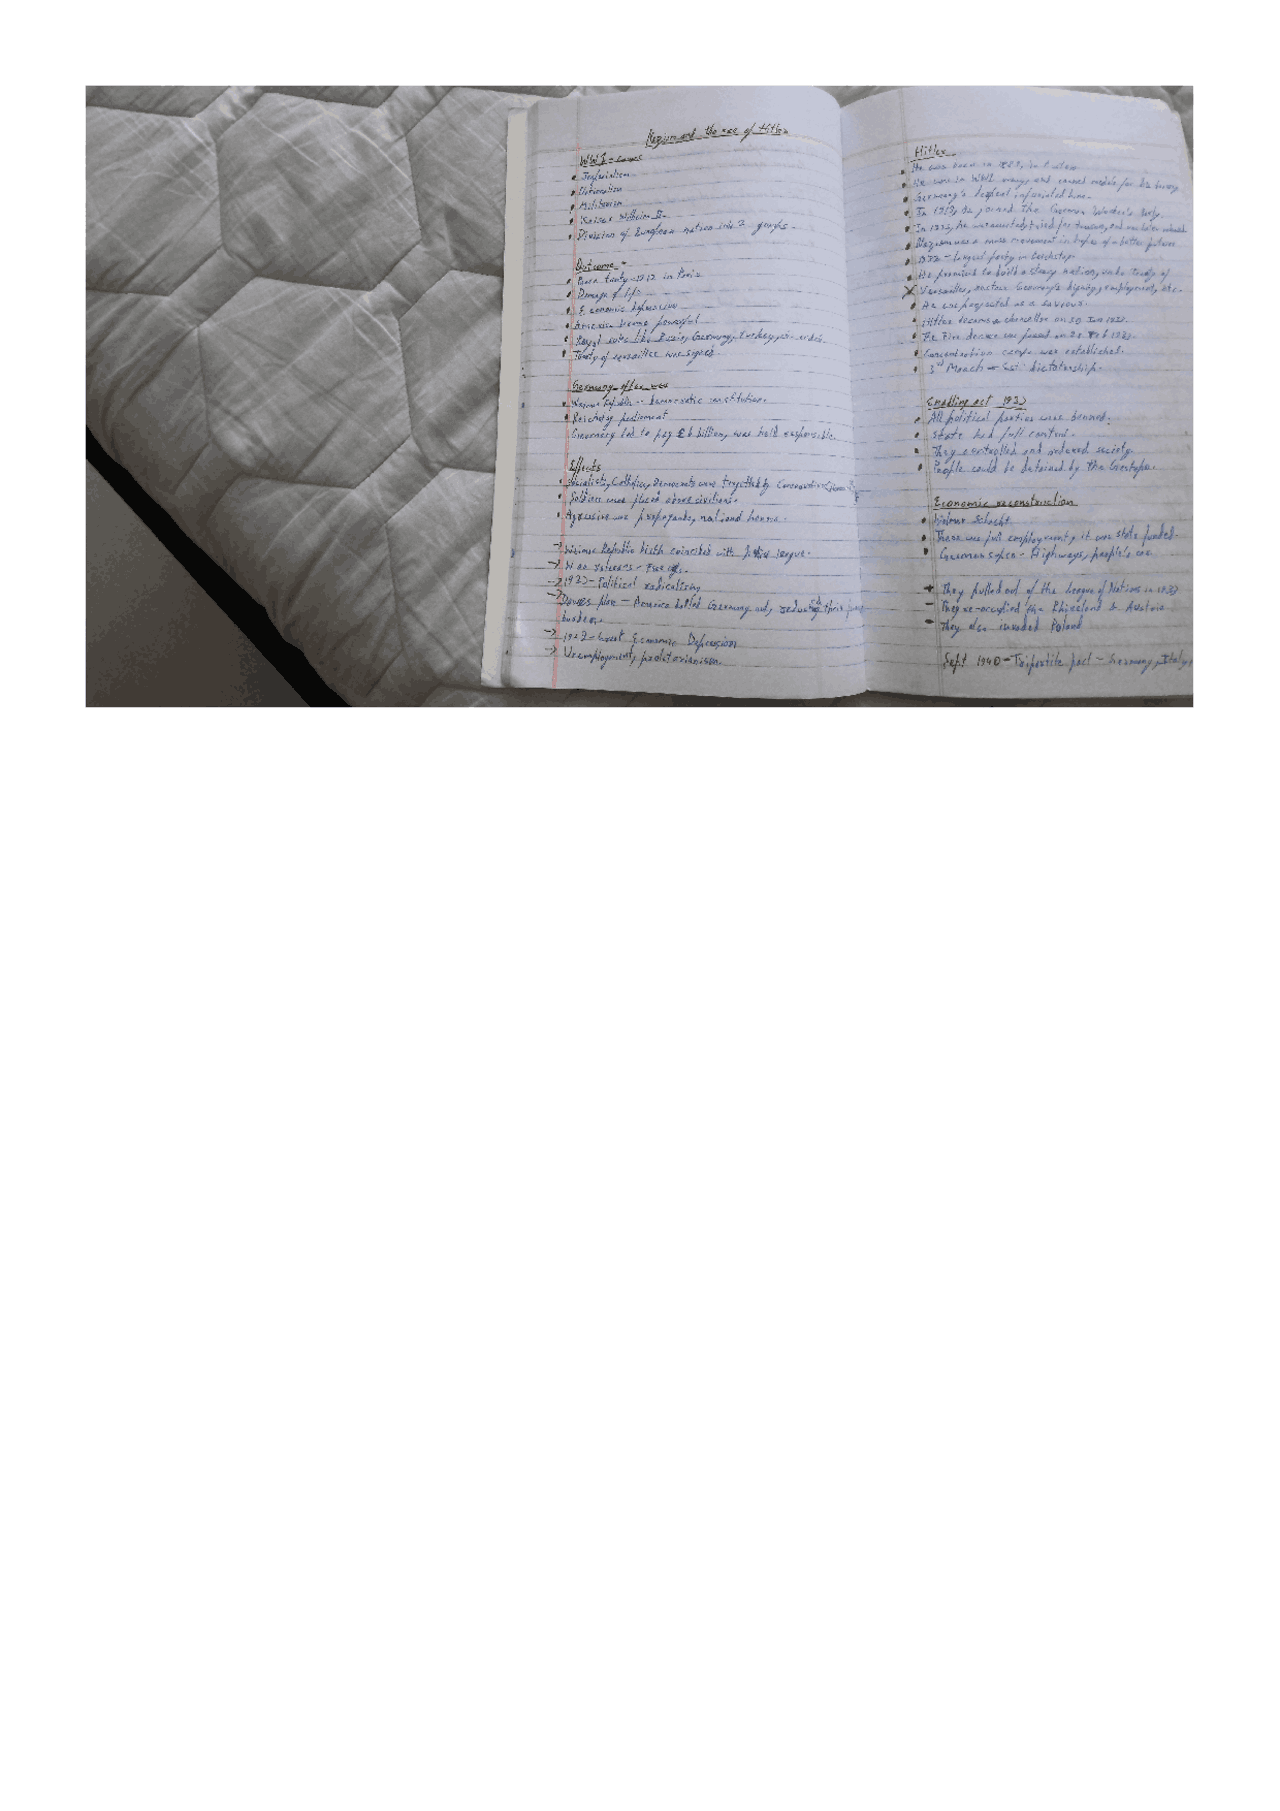 Nazism and the rise of Hitler
WWI - causes
• Imperialism
• Nationalism
• Militarism
• Kaiser Wilhelm II.
• Division of European nation into 2 groups.
Outcome -
• Peace treaty - in Paris
• Damage of life
• Economic depression
• America became powerful
• like Russia, Germany, Turkey,
• Treaty of versailles was signed.
Germany after war
• Republic - Democratic constitution.
• parliament
Germany had to pay £6 billion, was held responsible.
Effects
• Socialists, Catholics, Democrats were targetted by
• Soldiers were placed above civilians.
• Agressive war propaganda, national honour.
→ Republic birth coincided with league.
→
→ 1923 - Political radicalism
→ Dawes plan - America bailed Germany out, reducing their
burden.
→ Great Economic Depression
→ Unemployment, proletarianism.
Hitler
• He was born in 1889, in
• He was in WWI army, and earned medals for his bravery
• Germany's defeat infuriated him.
• In 1919, he joined the German Worker's Party.
• In 1923, he was arrested, tried for treason, and was later
• Nazism was a mass movement in hopes of a better future
• 1932 - largest party in
• He promised to build a strong nation, undo Treaty of
Versailles, restore Germany's dignity, employment, etc.
• He was projected as a saviour.
• Hitler became chancellor on 30 Jan 1933.
• The Fire decree was passed on 28 Feb 1933.
• Concentration camps was established.
• 3rd March - Est. dictatorship.
Enabling act 1933
• All political parties were banned.
• State had full control.
• They controlled and ordered society.
• People could be detained by the Gestapo.
Economic reconstruction
• Hjalmar Schacht
• There was full employment, it was state funded.
• German - Highways, people's car
They pulled out of the League of Nations in 1933
- They re-occupied the Rhineland & Austria
- They also invaded Poland
Sept 1940 - Tripartite pact - Germany, Italy